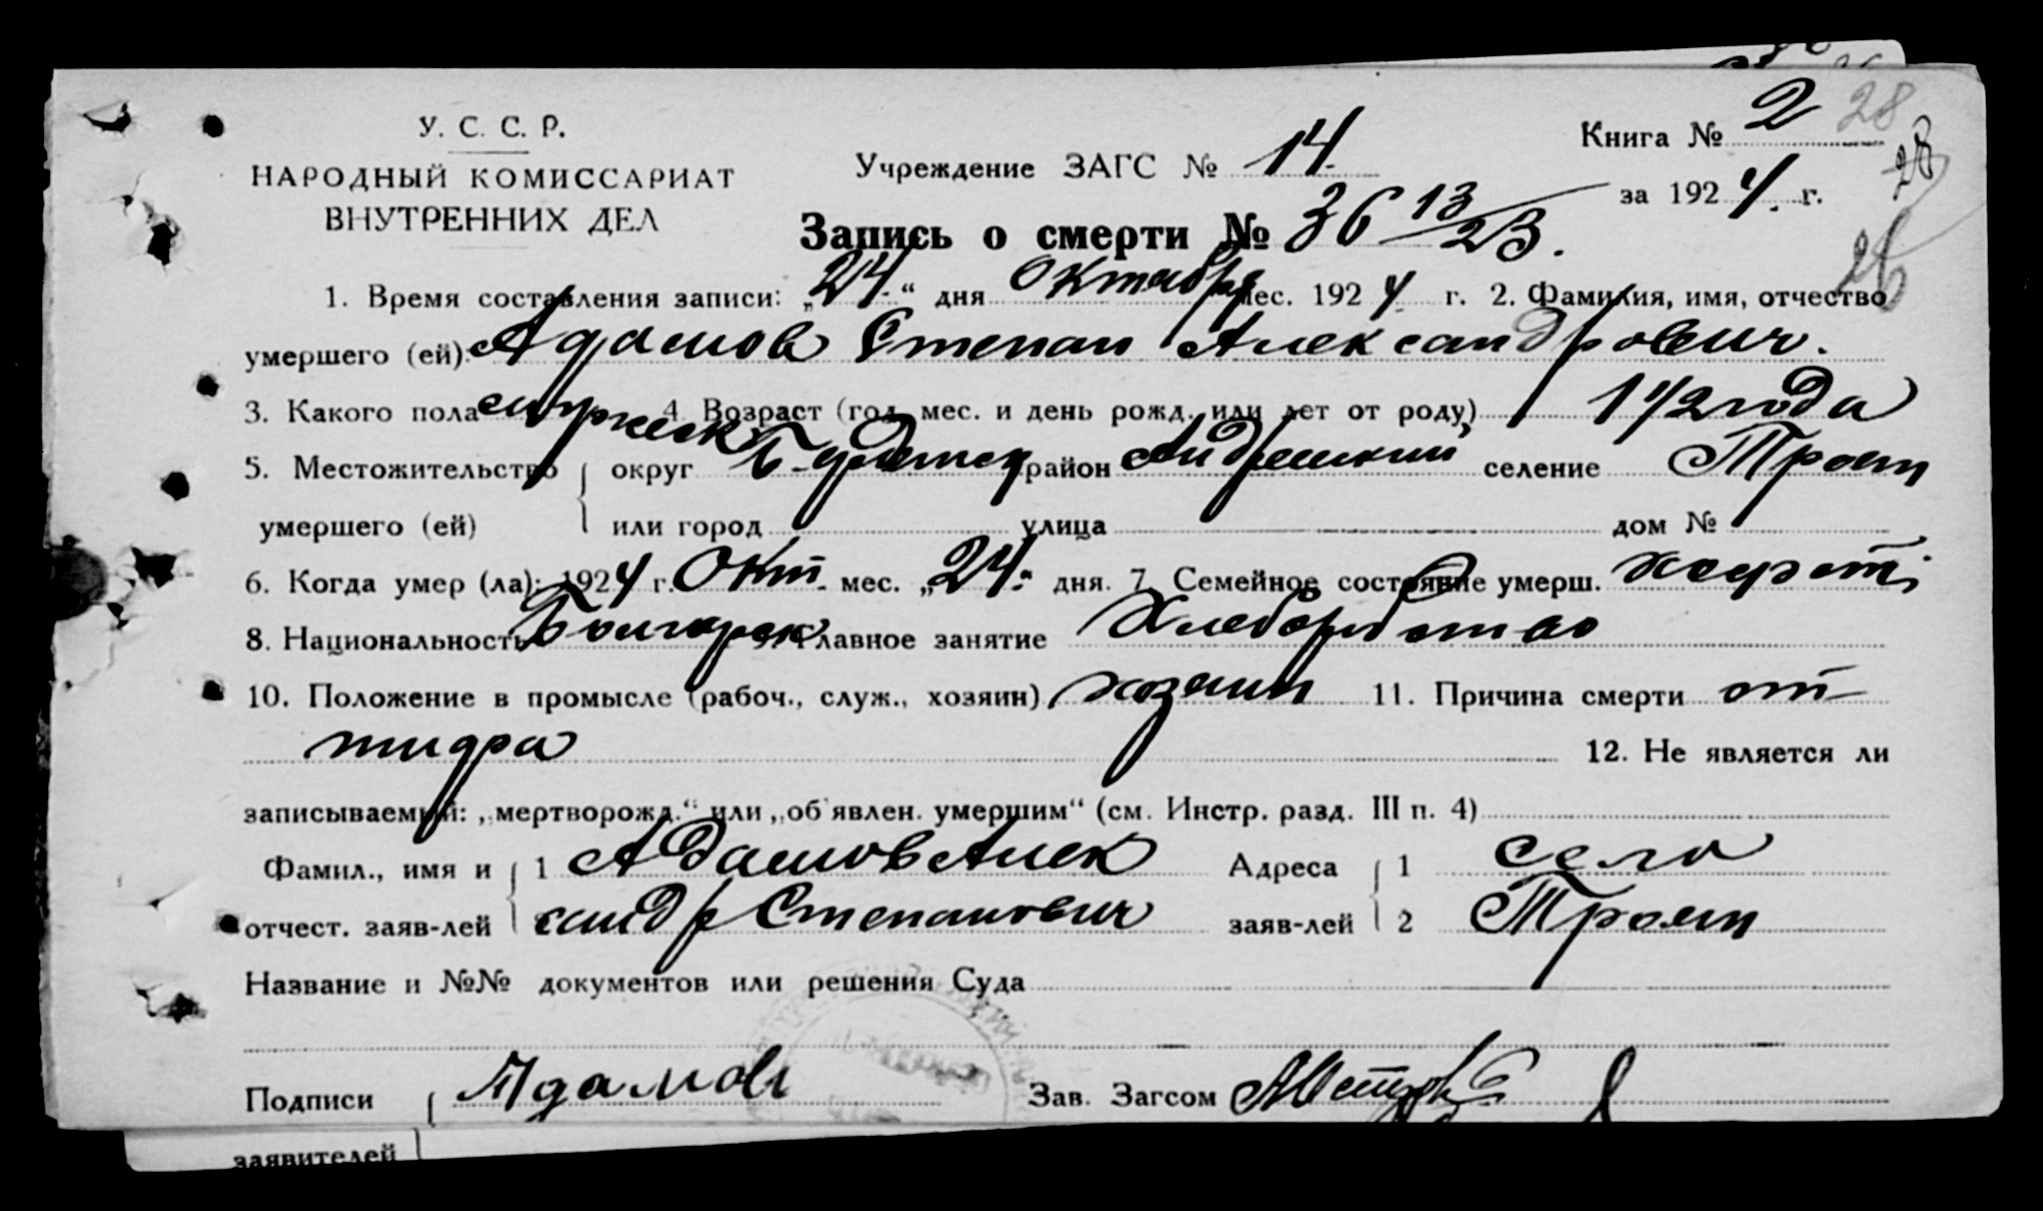 У. С. С. Р.
НАРОДНЫЙ КОМИССАРИАТ
ВНУТРЕННИХ ДЕЛ
Учреждение ЗАГС № 14
Книга № 2 28
28
за 1924 г.
26
Запись о смерти № 36 13/23.
1. Время составления записи: „24“ дня Октября мес. 1924 г. 2. Фамилия, имя, отчество
умершего (ей): Адамов Степан Александрович.
3. Какого пола мужск 4. Возраст (год, мес. и день рожд. или лет от роду) 1 1/2 года
5. Местожительство округ район Андреевский селение Троян
умершего (ей) или город улица дом №
6. Когда умер (ла): 1924 г. Окт. мес. „24“ дня. 7. Семейное состояние умерш.
8. Национальность Главное занятие Хлеборобство
10. Положение в промысле (рабоч., служ., хозяин) хозяин 11. Причина смерти от
тифа 12. Не является ли
записываемый: „мертворожд.“ или „об'явлен. умершим“ (см. Инстр. разд. III п. 4)
Фамил., имя и 1 Адамов Алек Адреса 1 село
отчест. заяв-лей сандр Степанович заяв-лей 2 Троян
Название и №№ документов или решения Суда
Подписи Адамов Зав. Загсом
заявителей